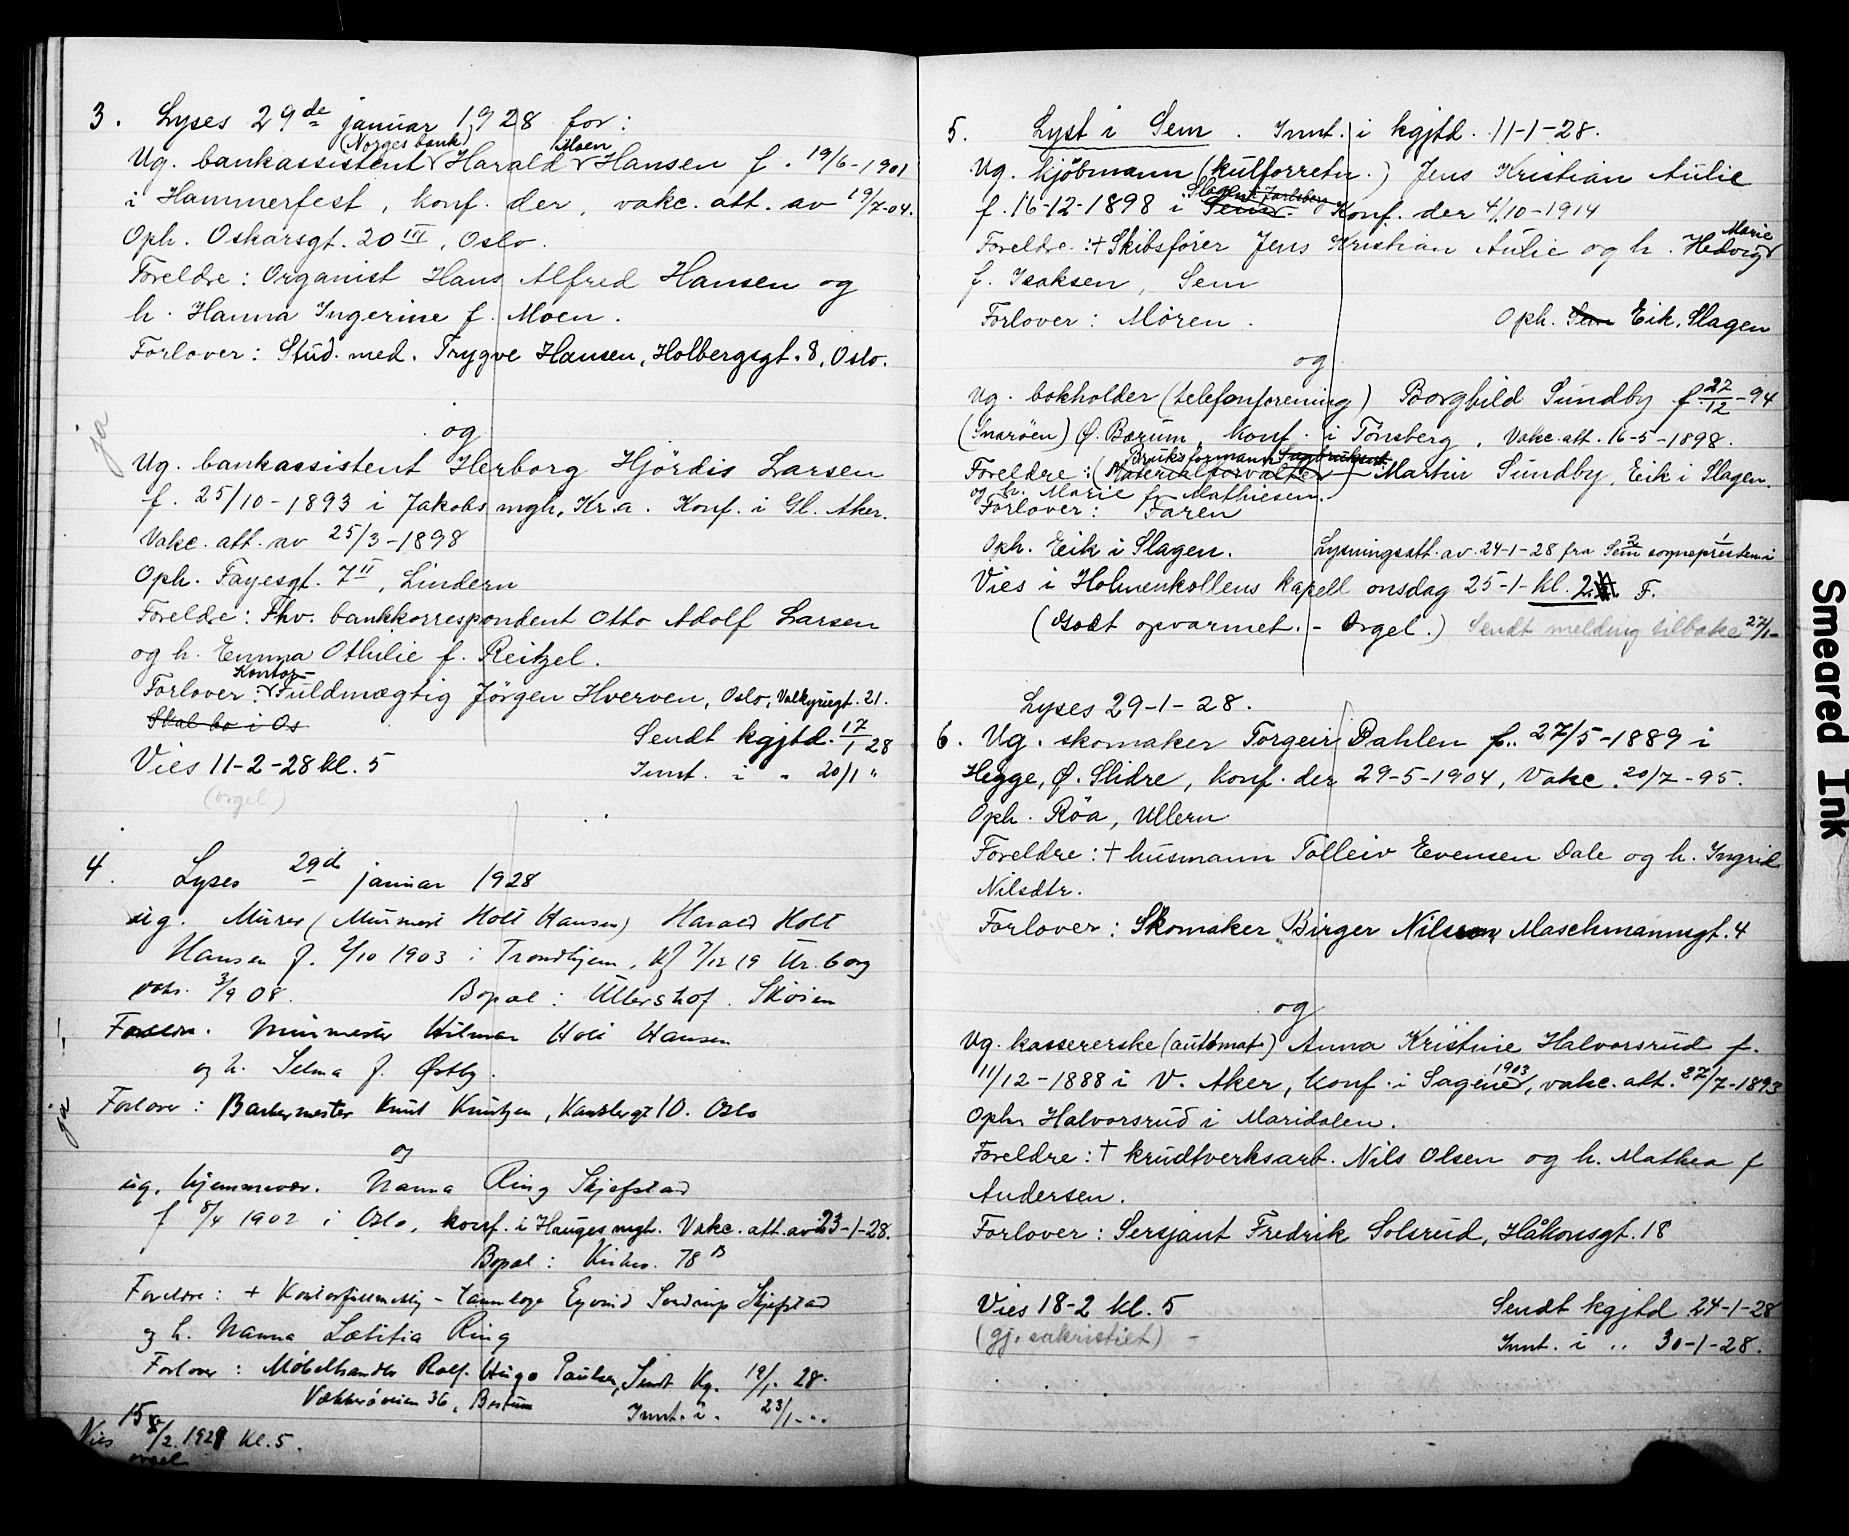 3. Lyses 29de januar 1928 for:
(Norges bank) Moen
Ug. bankassistent Harald Hansen f. 19/6-1901
i Hammerfest, konf. der, vakc. att. av 19/7-04.
Oph. Oskarsgt. 20 III, Oslo.
Foreldre: Organist Hans Alfred Hansen og
h. Hanna Ingerine f. Moen.
Forlover: Stud. med. Trygve Hansen, Holbergsgt. 8, Oslo.
ja
og
Ug. bankassistent Herborg Hjördis Larsen
f. 25/10-1893 i Jakobs mgh, Kr.a. Konf. i Gl. Aker.
Vakc. att. av 25/3-1898
Oph. Fayesgt. 7 II, Lindern
Foreldre: Fhv. bankkorrespondent Otto Adolf Larsen
og h. Emma Othilie f. Reitzel.
Kontor-
Forlover: Fuldmægtig Jörgen Hverven, Oslo, Valkyriegt. 21.
Skal bo i Os
Sendt kgjtd. 17/1 28
Vies 11-2-28 kl. 5
Innt. i " 20/1 "
(orgel)
4. Lyses 29de januar 1928
ug. Murer (Murmest Holt Hansen) Harald Holt
Hansen f. 2/10 1903 i Trondhjem, kf 7/12 19 Ur.borg
vaks. 3/9 08. Bopæl: Ullershof. Skøien
Foreldre. Murmester Hilmar Holt Hansen
og h. Selma f. Østby.
Forlover: Barbermester Knut Knutzen, 10. Oslo
ja
og
ug. hjemmevær. Nanna Ring Skjefstad
f 8/4 1902 i Oslo, konf. i Hauges mgh. Vakc. att. av 23-1-28.
Bopæl: Kirkev. 78 B
Foreldre: + Kontorfullmektig - tannlæge Eyvind Skjefstad
og h. Nanna Lætitia Ring
Forlover: Møbelhandler Rolf Hugo Paulsen, Sendt Kg. 19/1 28.
Vækkerøveien 36, Bestum Innt. i. 23/1 - "
15
Vies 8/2. 1928 Kl. 5.
orgel
5. Lyst i Sem. Innt. i kgjtd. 11-1-28.
Ug. kjöbmann (kulforretn.) Jens Kristian Aulie
Slagen Jarlsberg
f. 16-12-1898 i Sem. Konf. der 4/10-1914
Marie
Foreldre: + Skibsfører Jens Kristian Aulie og h. Hedvig
f. Isaksen, Sem
Forlover: Møren. Oph. Sem Eik, Slagen
og
Ug. bokholder (telefonforening) Borghild Sundby f 27/12-94
(Snarøen) Ø. Bærum, konf. i Tönsberg, Vakc. att. 16-5-1898.
Bruksformann Sagbruksarb.
Foreldre: (Materialforvalter) Martin Sundby, Eik i Slagen.
og h. Marie f. Mathiesen.
Forlover: Faren
Oph. Eik i Slagen. Lysningsatt. av 24-1-28 fra Sem sogneprestem i
Vies i Holmenkollens kapell onsdag 25-1- kl. 2 F.
(Godt opvarmet. - Orgel.) Sendt melding tilbake 27/1-
Lyses 29-1-28.
6. Ug. skomaker Torgeir Dahlen f. 27/5-1889 i
Hegge, Ø. Slidre, konf. der 29-5-1904, Vakc. 20/7-95.
Oph. Röa, Ullern
Foreldre: + husmann Tolleiv Evensen Dale og h. Ingrid
Nilsdtr.
Forlover: Skomaker Birger Nilsson, Maschmannsgt. 4
og
Ug. kassererske (automat) Anna Kristine Halvorsrud f.
11/12-1888 i V. Aker, konf. i Sagene 1903, vakc. att. 27/7-1893
Oph. Halvorsrud i Maridalen.
Foreldre: + krudtverksarb. Nils Olsen og h. Mathea f
Andersen.
Forlover: Sersjant Fredrik Solsrud, Håkonsgt. 18
Vies 18-2 kl. 5 Sendt kgjtd 24-1-28
(gj. sakristiet) - Innt. i " 30-1-28.
Smeared Ink